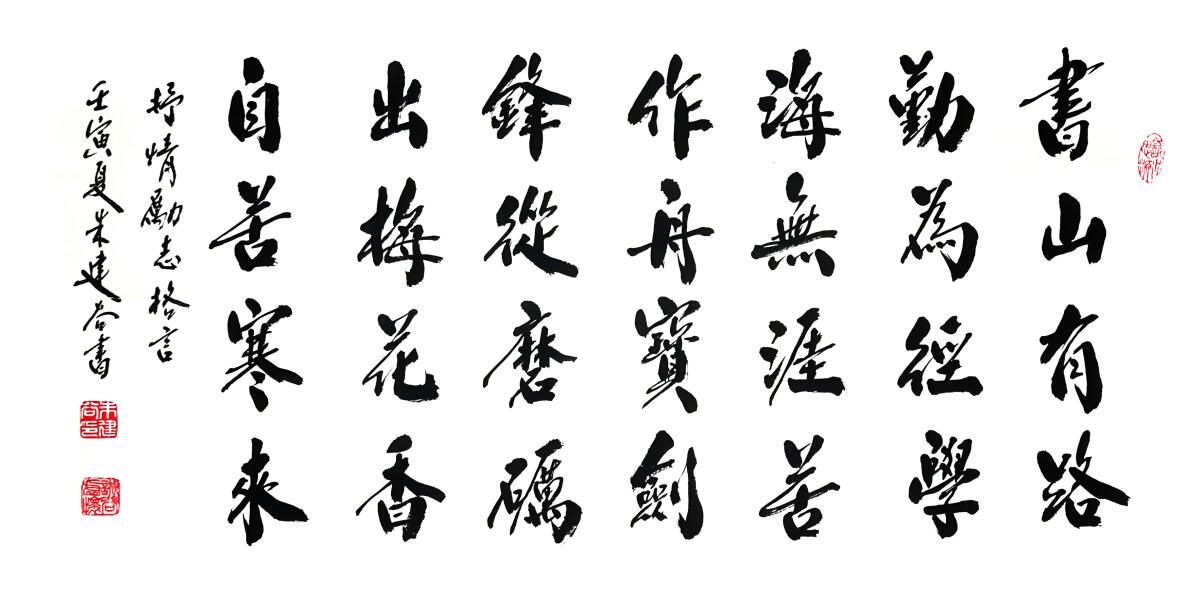 書山有路
勤為徑學
海無涯苦
作舟寶劍
鋒從磨礪
出梅花香
自苦寒來
抒情勵志格言
壬寅夏朱建谷書
朱建谷印